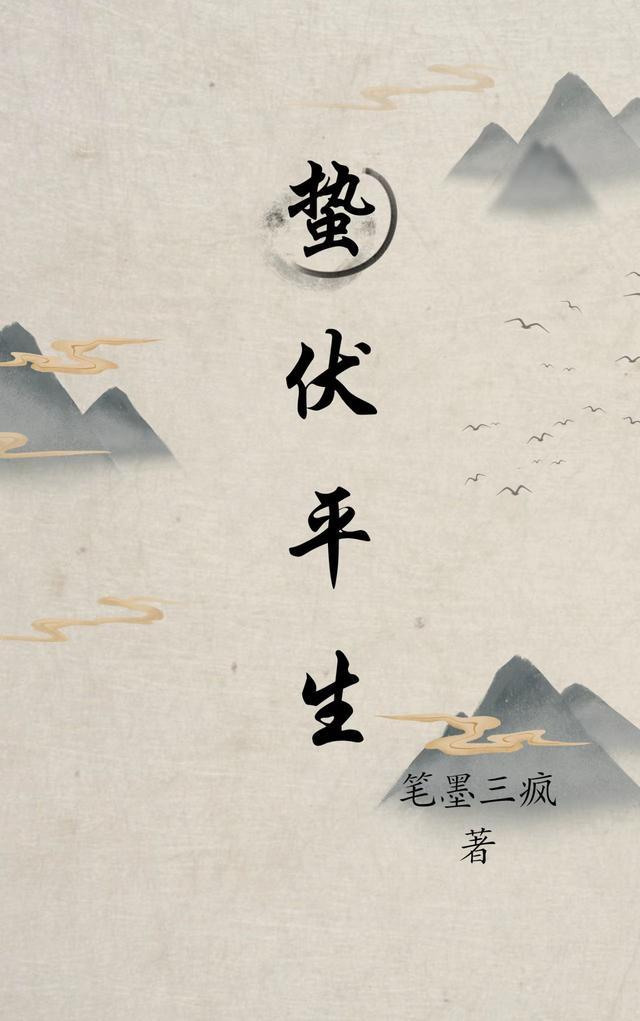 蛰伏平生
笔墨三疯
著